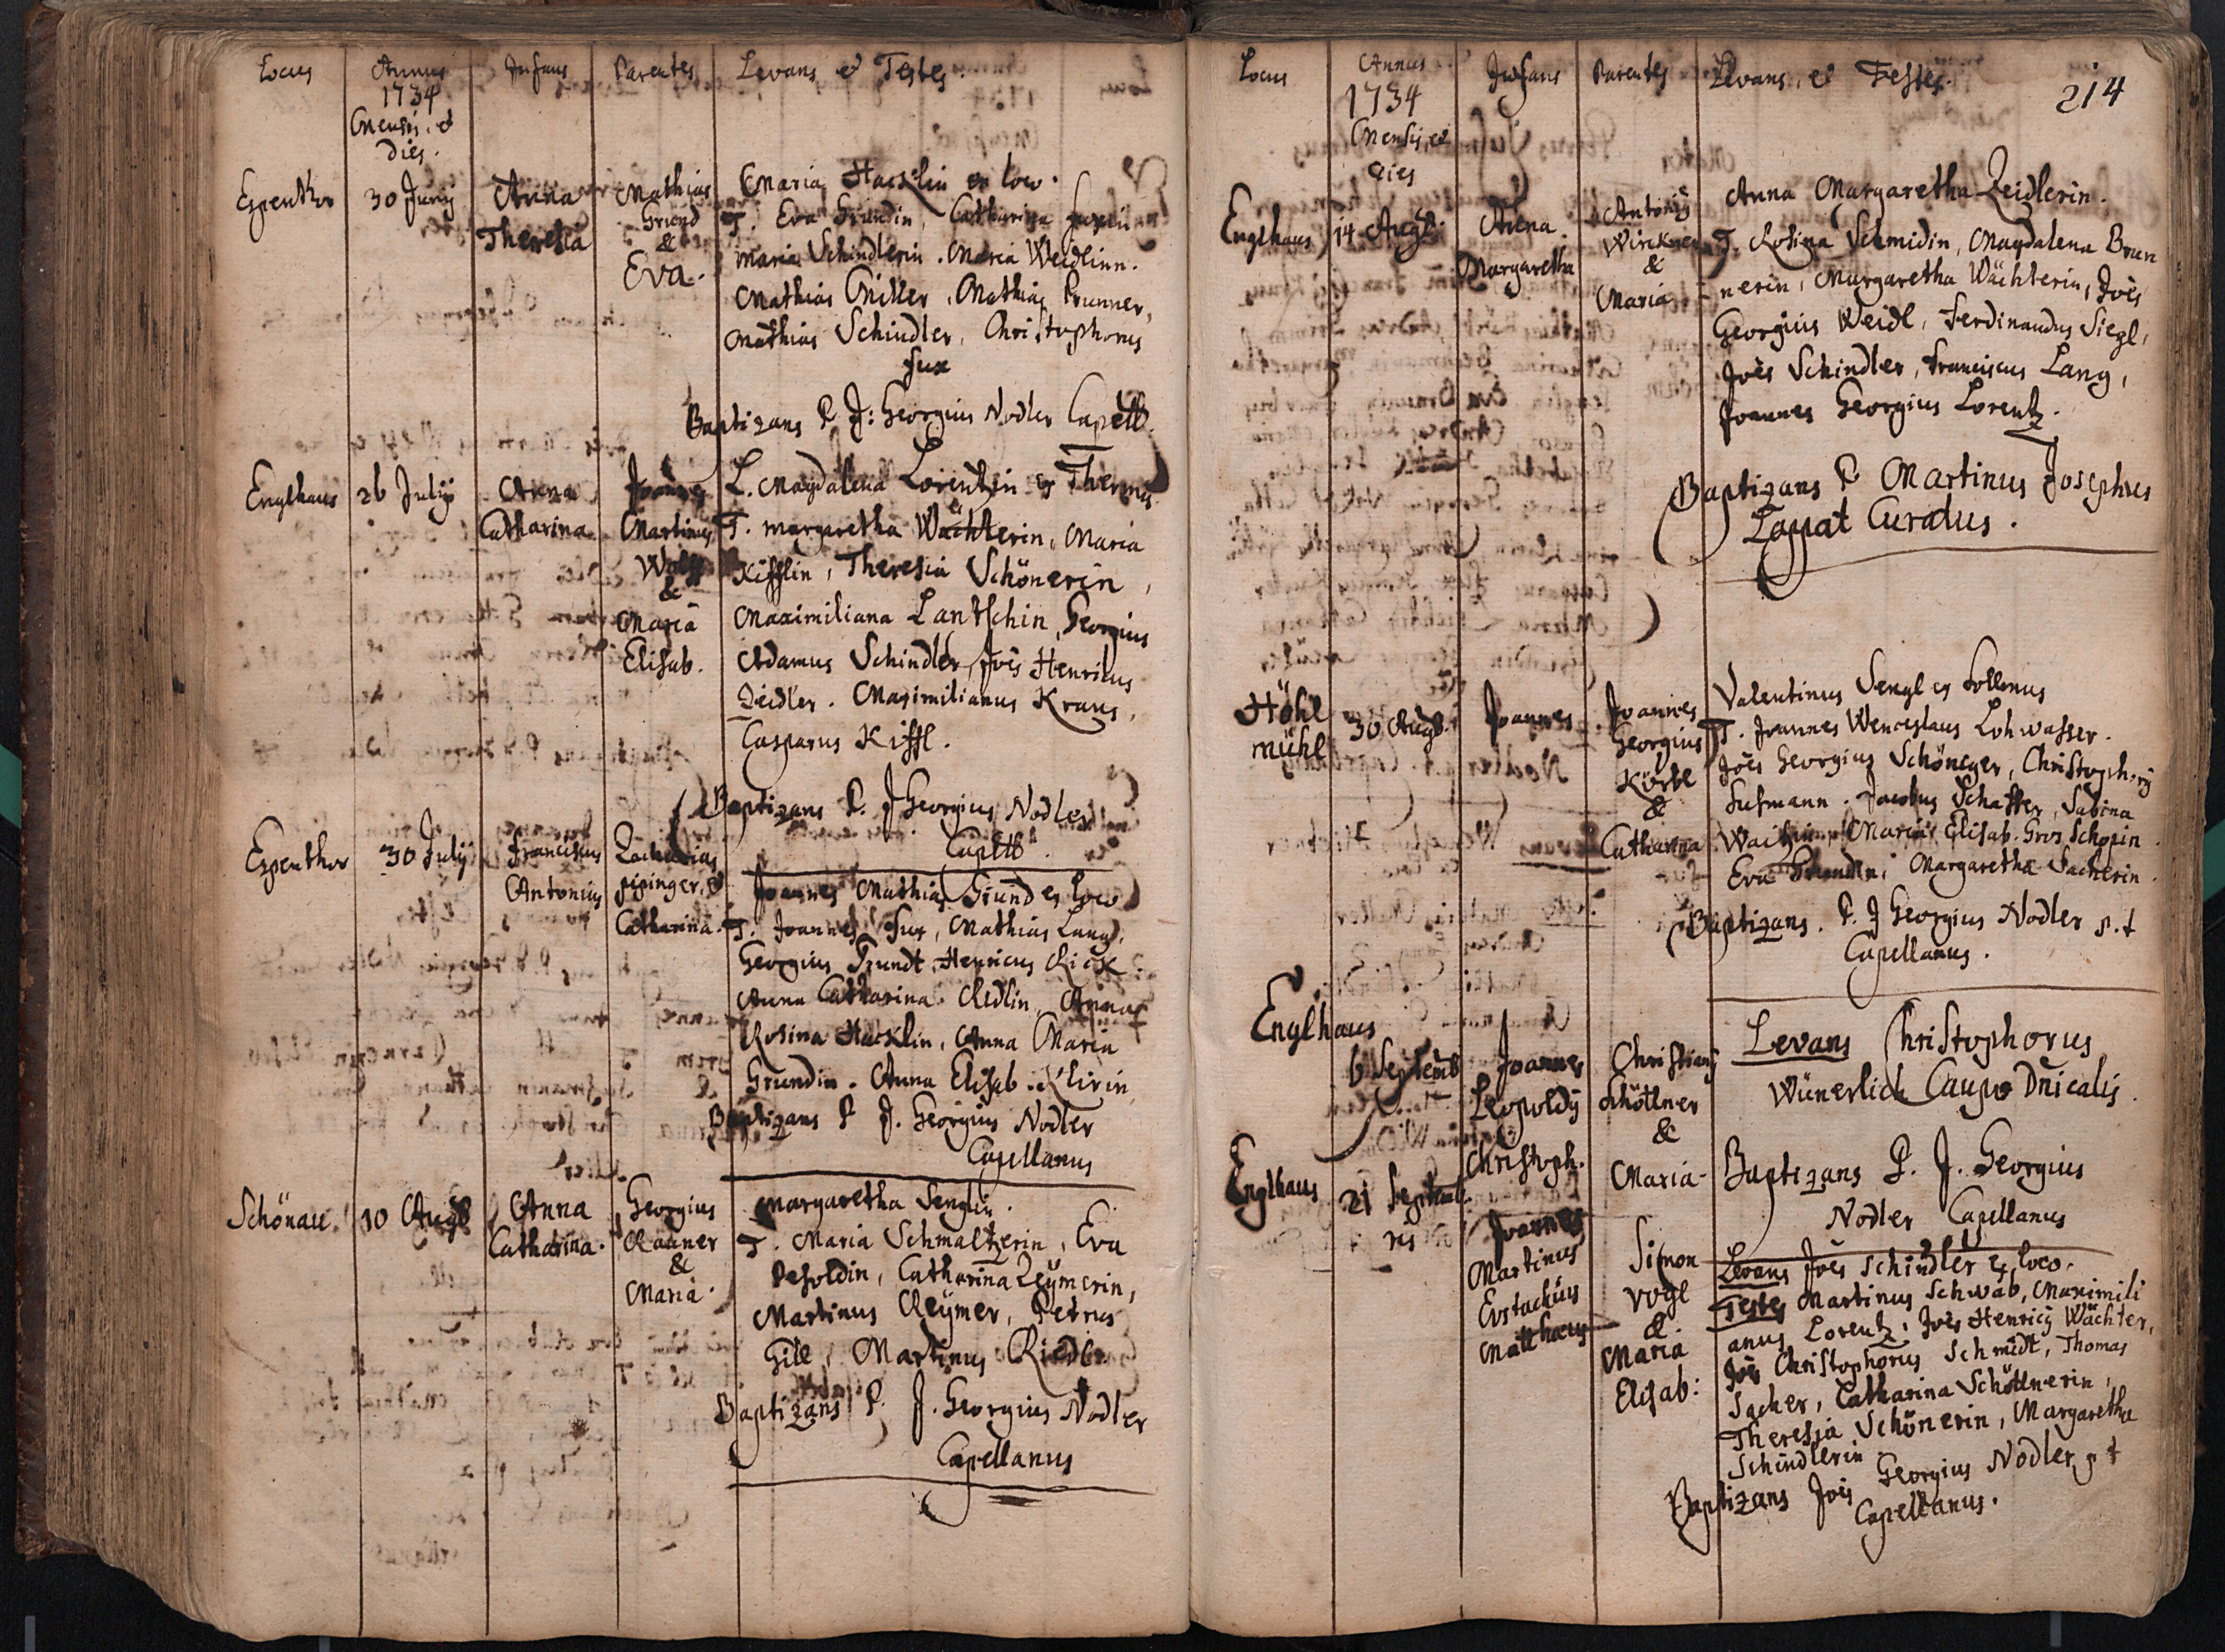 Locus Annus Infans Parentes Levans et Testes.
1734
Mensis et
dies.
Espenthor 30 Junij Anna Mathias Maria Hacklin ex loco.
Theresia Grund T. Eva Grundin, Catharina Fuxin
&
Eva. Maria Schindlerin. Maria Weidlinn.
Mathias Miller, Mathias Prunner,
Mathias Schindler, Christophorus
Fux
Baptizans P. J: Georgius Nodler Capell.
Englhaus 26 Julij Anna Joannes L. Magdalena Lorentzin ex Thermis.
Catharina Martinus T. Margaretha Wächterin, Maria
Wolff Kifflin, Theresia Schönerin,
&
Maria Maximiliana Lantschin, Georgius
Elisab. Adamus Schindler, Joēs Henricus
Zeidler. Maximilianus Kraus,
Casparus Kiffl.
Baptizans P. J Georgius Nodler
Capell.
Espenthor 30 Julij Franciscus Zacharias
Antonius pipinger, & Joannes Mathias Grund ex loco
Catharina. T. Joannes Fux, Mathias Lang,
Georgius Grundt, Henricus Rick.
Anna Catharina Redlin, Anna
Rosina Hacklin, Anna Maria
Grundin. Anna Elisab.
Baptizans P J. Georgius Nodler
Capellanus
Schönau. 10 Aug. Anna Georgius Margaretha Senglin.
Catharina. Rauner T. Maria Schmaltzerin, Eva
&
Maria. Pesoldin, Catharina Zeÿmerin,
Martinus Reÿmer, Petrus
Gill, Martinus Riedl.
Baptizans P. J. Georgius Nodler
Capellanus
Locus Annus Infans Parentes Levans, et Testes. 214
1734
Mensis, et
dies
Englhaus 14 Aug. Anna Antonius Anna Margaretha Zeidlerin.
Margaretha Wirckner T. Rosina Schmidin, Magdalena Brun
&
Maria nerin, Margaretha Wächterin, Joēs
Georgius Weidl, Ferdinandus Siegl,
Joēs Schindler, Franciscus Lang,
Joannes Georgius Lorentz.
Baptizans P Martinus Josephus
Lappat Curatus.
Höhl 30 Aug. Joannes Joannes Valentinus Sengl ex Sollmus
mühl Georgius T. Joannes Wenceslaus Lohwasser.
Körbl Joēs Georgius Schöneger, Christophorus
& Susmann. Jacobus Schaffer, Sabina
Catharina Maria Elisab. Gros Schopin
Eva Grundin, Margaretha Sacherin.
Baptizans. P. J Georgius Nodler p.t
Capellanus.
Englhaus 6 Septemb Joannes Christianus Levans Christophorus
Leopoldus Schöttner Wünerlich Caupo Dnicalis.
&
Christoph. Maria. Baptizans P. J. Georgius
Nodler Capellanus
Englhaus 21 Septemb
ris Joannes Simon Levans Joēs Schindler ex loco.
Martinus Vogl Testes Martinus Schwab, Maximili
Eustachius & anus Lorentz, Joēs Henricus Wächter,
Matthaeus Maria Joēs Christophorus Schmidt, Thomas
Elisab: Sacher, Catharina Schöttnerin,
Theresia Schönerin, Margaretha
Schindlerin
Baptizans Joēs Georgius Nodler p t
Capellanus.